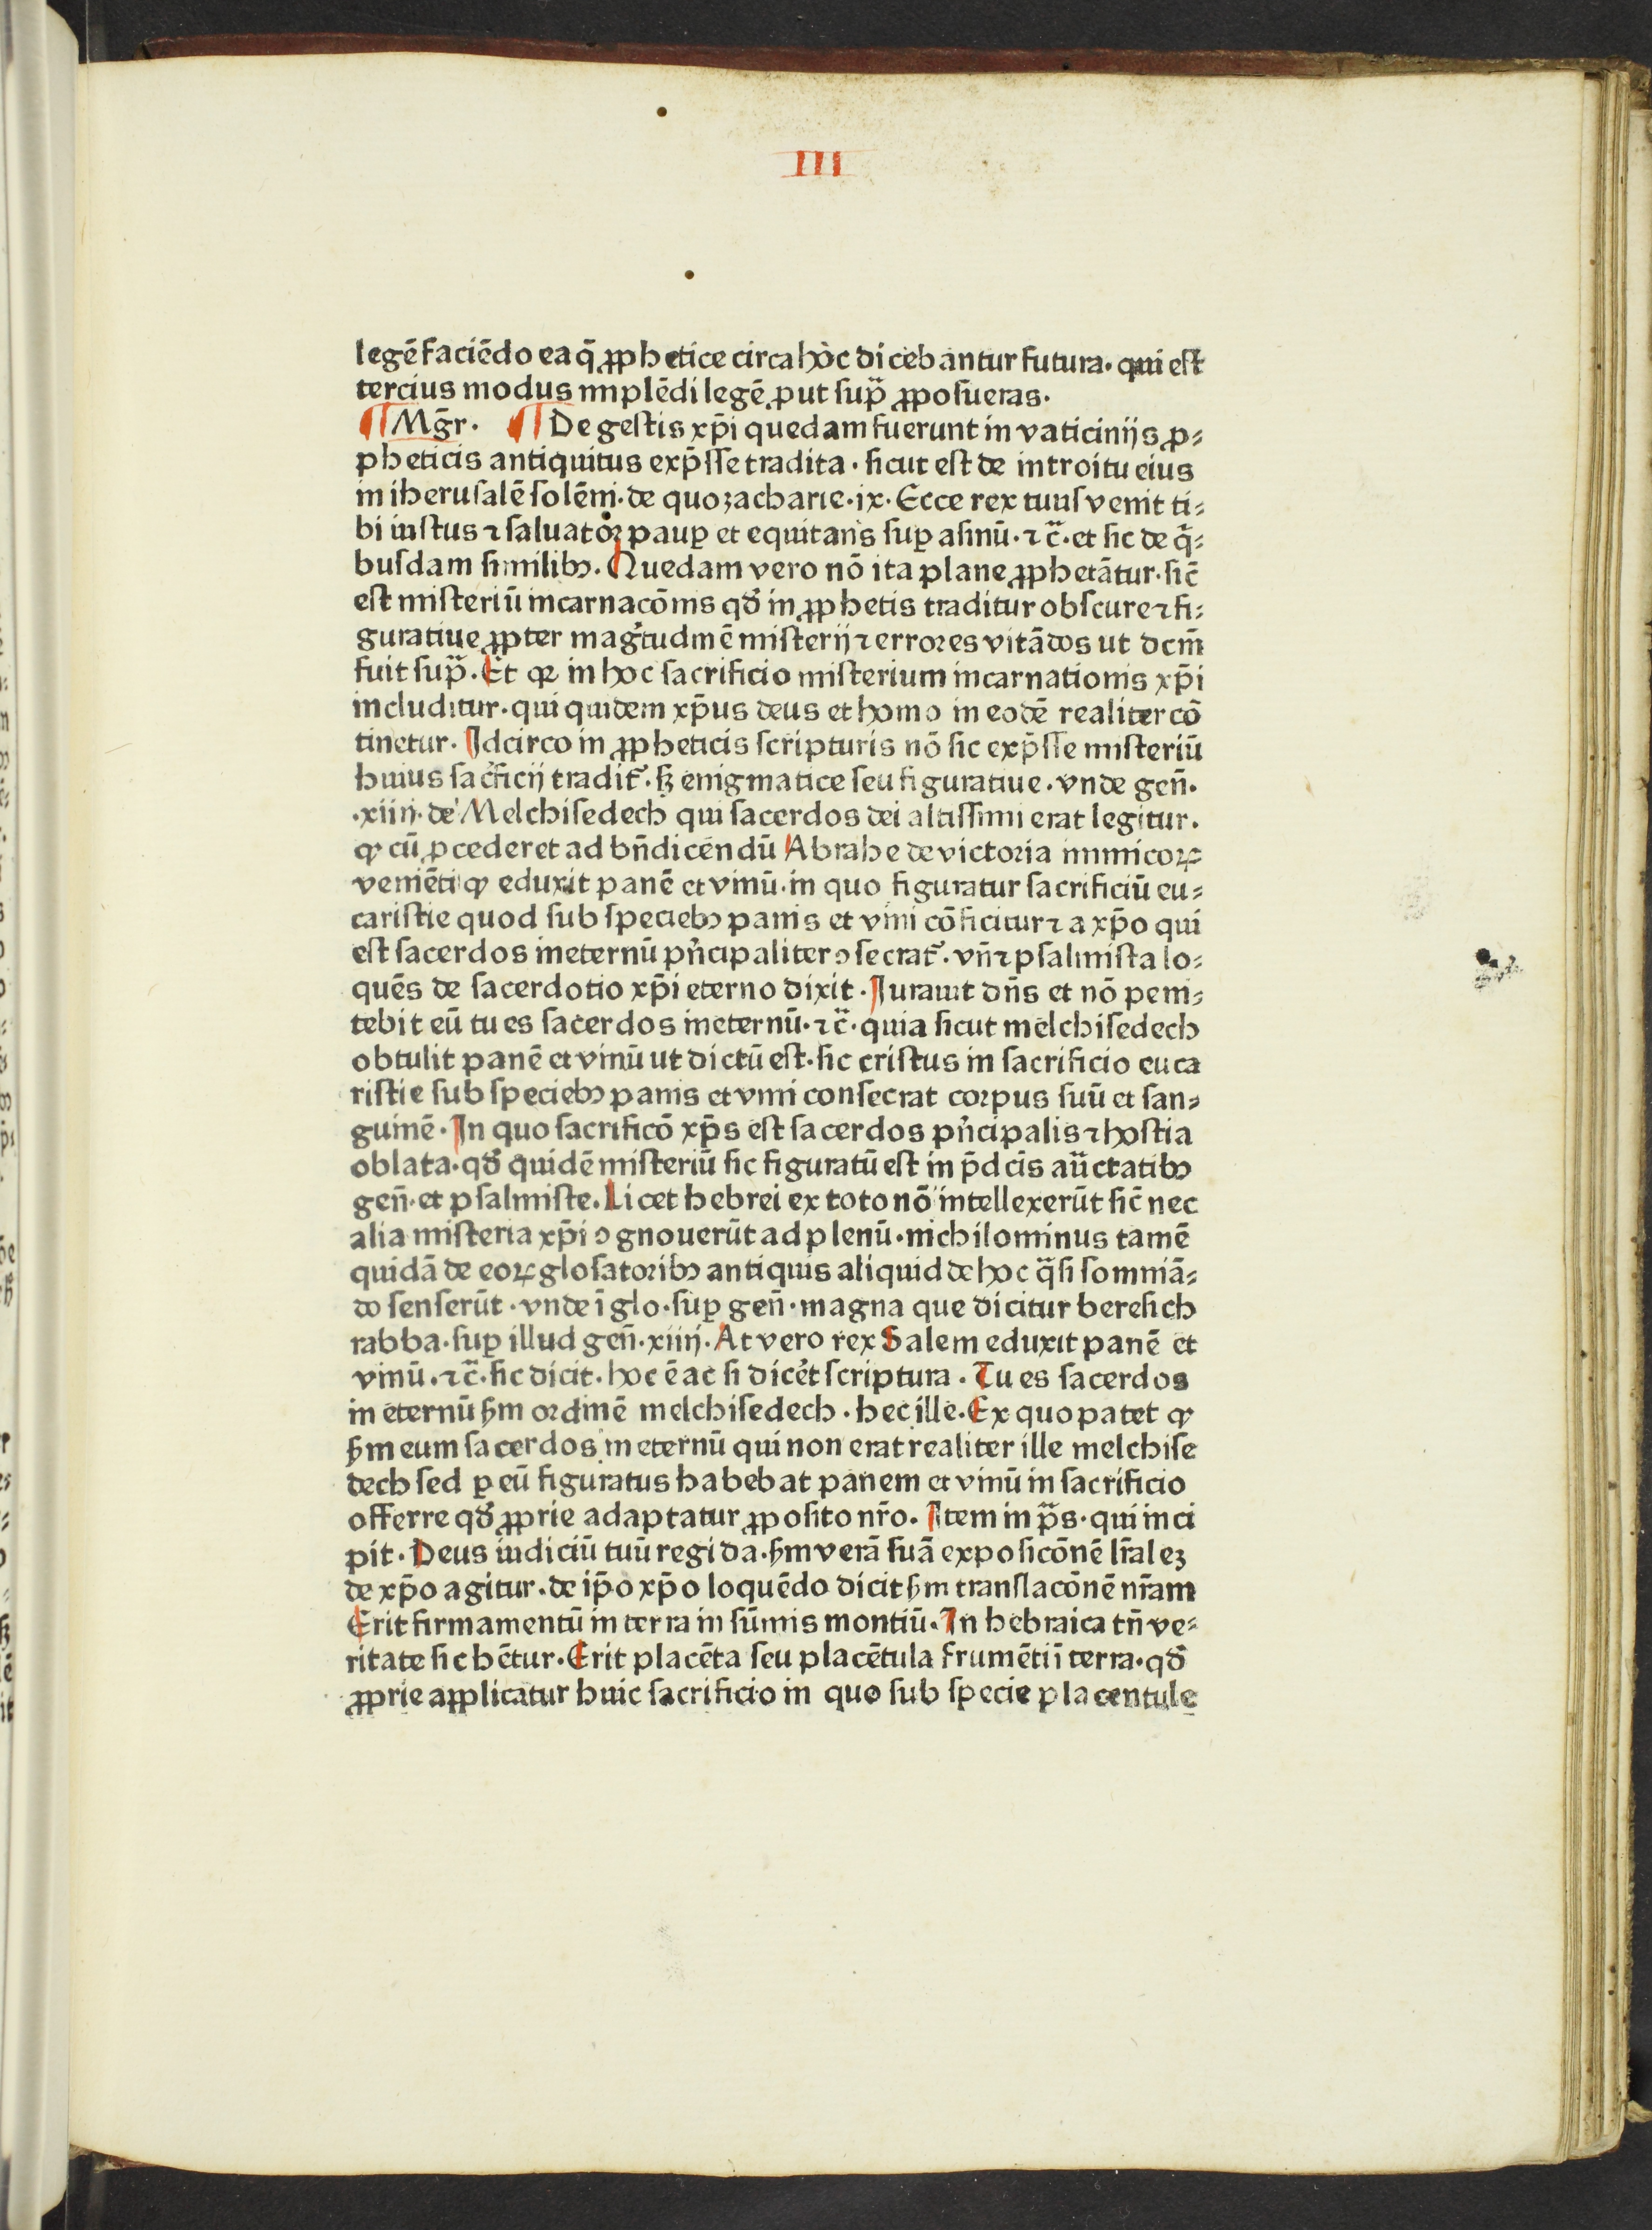 III
legē faciēdo ea q̄ ꝓphetice circa hoc dicebantur futura· qui est
tercius modus implēdi legē ꝓut supᷓ ꝓposueras·
¶ Mḡr· ¶ De gestis xp̄i quedam fuerunt in vaticinijs ꝓ⸗
pheticis antiquitus exp̄sse tradita· sicut est de introitu eius
in iherusalē solēni· de quo zacharie·ix· Ecce rex tuus venit ti⸗
bi iustus ⁊ saluator paup̲ et equitans sup̲ asinū·⁊c̄· et sic de qᷓ⸗
busdam similibꝫ. Quedam vero nō ita plane ꝓphetātur· sic̄
est misteriū incarnacōnis qđ in ꝓphetis traditur obscure ⁊ fi⸗
guratiue ꝓpter mag̃tudinē misterij ⁊ errores vitādos ut dcm̄
fuit supᷓ. Et qꝛ in hoc sacrificio misterium incarnationis xp̄i
includitur· qui quidem xp̄us deus et homo in eodē realiter cō
tinetur. Idcirco in ꝓpheticis scripturis nō sic exp̄sse misteriū
huius sac̓ficij tradit᷑· sꝫ enigmatice seu figuratiue· vnde gen̄·
·xiiij· de Melchisedech qui sacerdos dei altissimi erat legitur·
ꝙ cū ꝓcederet ad bn̄dicendū Abrahe de victoria inimicoꝝ
veniēti ꝙ eduxit panē et vinū· in quo figuratur sacrificiū eu⸗
caristie quod sub speciebꝫ panis et vini cōficitur ⁊ a xp̄o qui
est sacerdos ineternū pn̓cipaliter ꝯsecrat᷑· vn̄ ⁊ psalmista lo⸗
quēs de sacerdotio xp̄i eterno dixit· Iurauit dn̄s et nō peni⸗
tebit eū tu es sacerdos ineternū·⁊c̄· quia sicut melchisedech
obtulit panē et vinū ut dictū est· sic cristus in sacrificio euca
ristie sub speciebꝫ panis et vini consecrat corpus suū et san⸗
guinē· In quo sacrificō xp̄s est sacerdos pn̓cipalis ⁊ hostia
oblata· qđ quidē misteriū sic figuratū est in p̄dcīs auctatibꝫ
gen̄· et psalmiste. Licet hebrei ex toto nō intellexerūt sic̄ nec
alia misteria xp̄i ꝯgnouerūt ad plenū· nichilominus tamē
quidā de eoꝝ glosatoribꝫ antiquis aliquid de hoc qᷓsi somniā⸗
do senserūt· vnde ī glo· sup̲ gen̄· magna que dicitur beresich
rabba· sup̲ illud gen̄·xiiij· At vero rex Salem eduxit panē et
vinū·⁊c̄· sic dicit· hoc ē ac si dicēt scriptura· Tu es sacerdos
in eternū ẜm ordinē melchisedech· hec ille· Ex quo patet ꝙ
ẜm eum sacerdos ineternū qui non erat realiter ille melchise
dech sed ꝑ eū figuratus habebat panem et vinū in sacrificio
offerre qđ ꝓprie adaptatur ꝓposito nr̄o. Item in pᷓs· qui inci
pit· Deus iudiciū tuū regi da· ẜm verā suā exposicōnē lr̄aleꝫ
de xp̄o agitur· de ip̄o xp̄o loquēdo dicit ẜm translacōnē nr̄am
Erit firmamentū in terra in sūmis montiū. In hebraica tn̄ ve⸗
ritate sic hētur· Erit placēta seu placētula frumēti ī terra· qđ
ꝓprie applicatur huic sacrificio in quo sub specie placentule